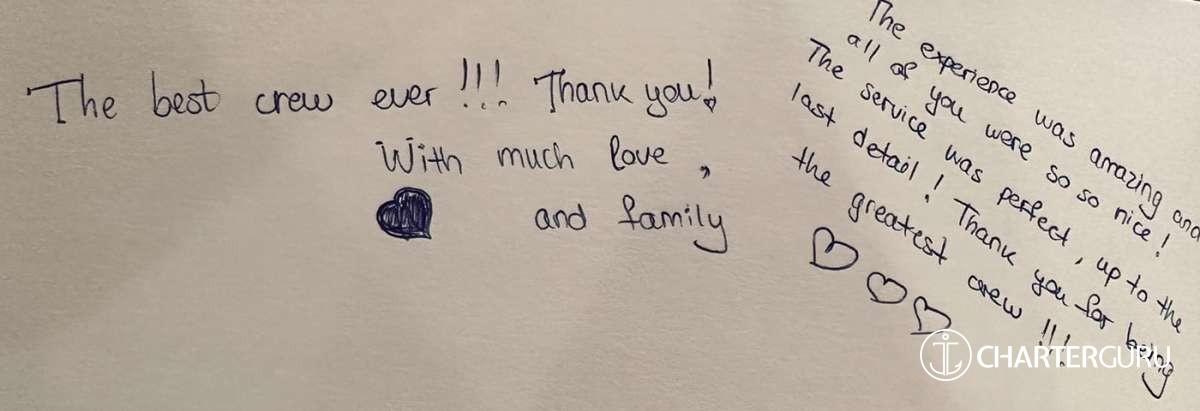 The best crew ever!!! Thank you!
With much love,
and family
The experience was amazing and
all of you were so so nice!
The service was perfect, up to the
last detail! Thank you for being
the greatest crew!!!
CHARTERGURU